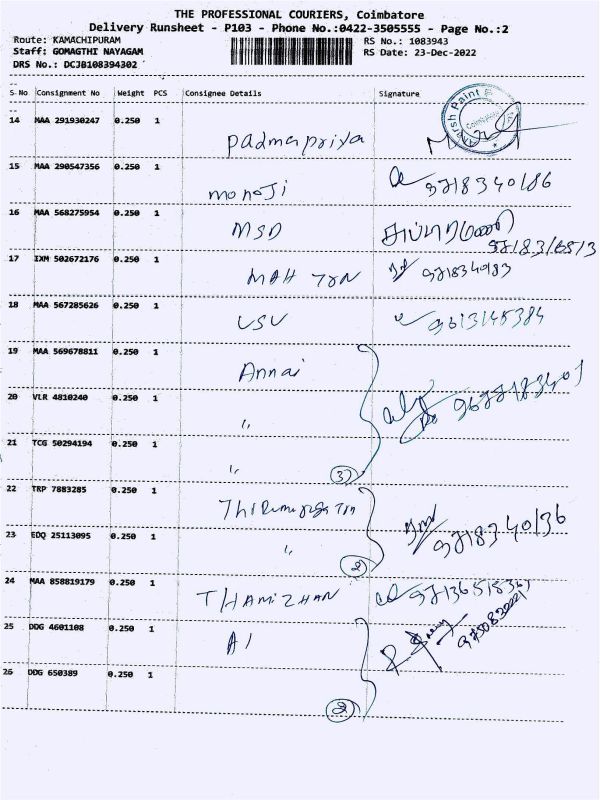 THE PROFESSIONAL COURIERS, Coimbatore
Delivery Runsheet - P103 - Phone No.:0422-3505555 - Page No.:2
Route: KAMACHIPURAM RS No.: 1083943
Staff: GOMAGTHI NAYAGAM RS Date: 23-Dec-2022
DRS No.: DCJB108394302
S No Consignment No Weight PCS Consignee Details Signature
14 MAA 291930247 0.250 1 Padmapriya
15 MAA 290547356 0.250 1 monoji 9718340186
16 MAA 568275954 0.250 1 MSD
17 IXM 502672176 0.250 1 MAH
18 MAA 567285626 0.250 1 VSV
19 MAA 569678811 0.250 1 Annai
20 VLR 4810240 0.250 1 "
21 TCG 50294194 0.250 1 " 3
22 TRP 7883285 0.250 1
23 EDQ 25113095 0.250 1 " 2
24 MAA 858819179 0.250 1 THAMIZHAN
25 DDG 4601108 0.250 1 AI
26 DDG 650389 0.250 1 2